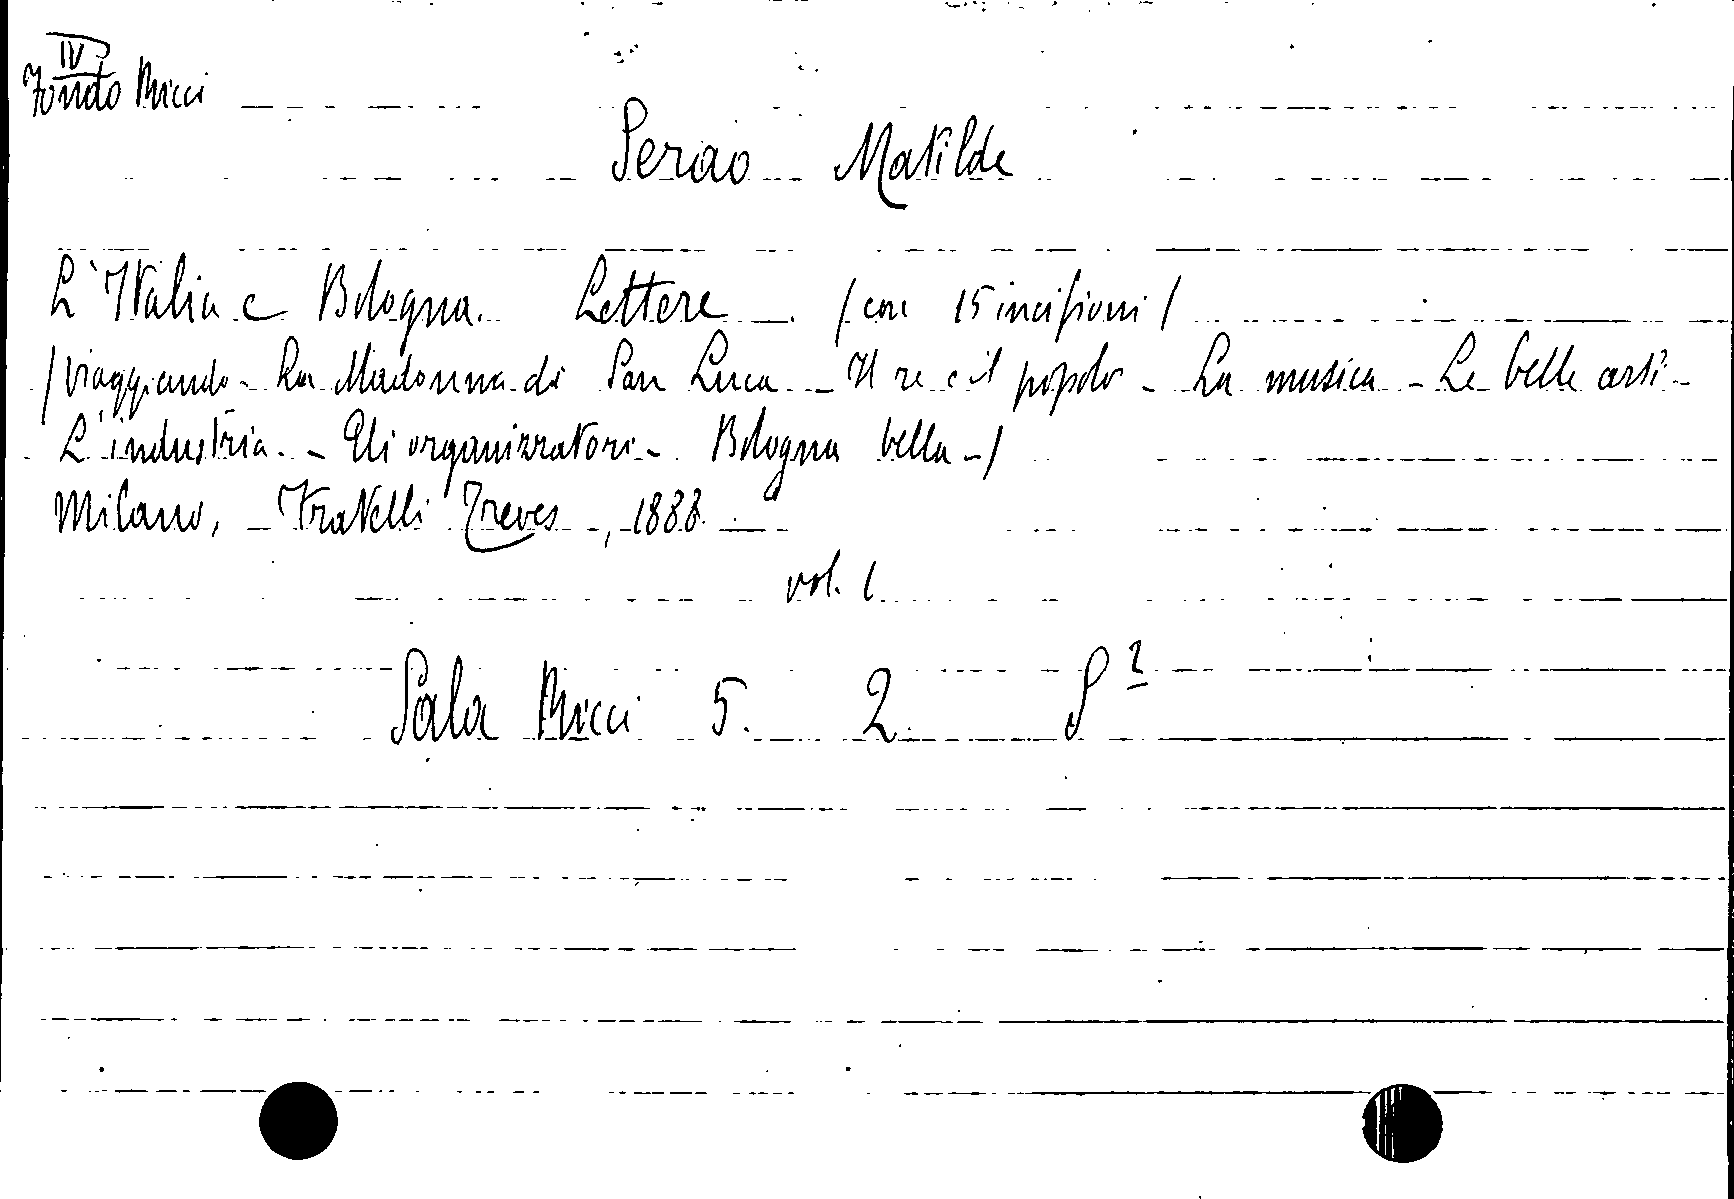 IV
Fondo Ricci
Serao Matilde
L'Italia e Bologna. Lettere. (con 15 incisioni)
(Viaggiando - La Madonna di San Luca - Il re e il popolo - La musica - Le belle arti -
L'industria. - Gli organizzatori - Bologna bella -)
Milano, Fratelli Treves, 1888.
vol. 1
Sala Ricci 5. 2. S²